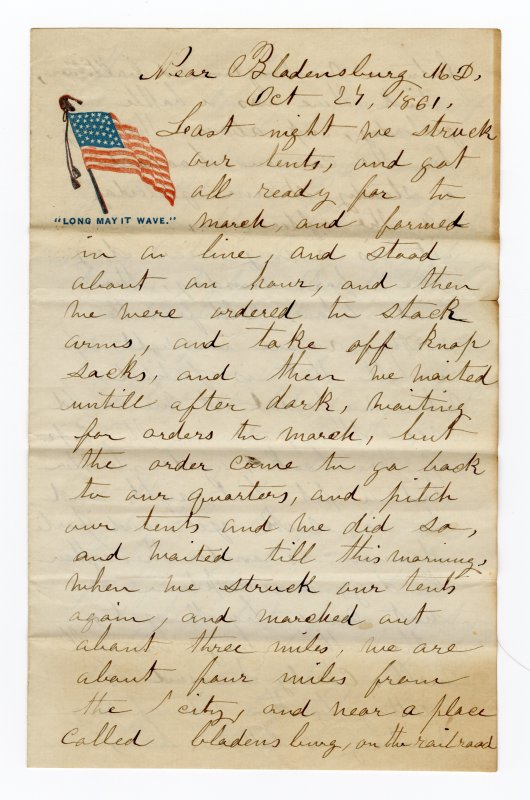 Near Bladensburg MD,
Oct 27, 1861.
"LONG MAY IT WAVE."
Last night we struck
our tents, and got
all ready for to
march, and formed
in a line, and stood
about an hour, and then
we were ordered to stack
arms, and take off knap
sacks, and then we waited
untill after dark, waiting
for orders to march, but
the order come to go back
to our quarters, and pitch
our tents and we did so,
and waited till this morning,
when we struck our tents
again, and marched out
about three miles, we are
about four miles from
the city, and near a place
called bladensburg, on the railroad